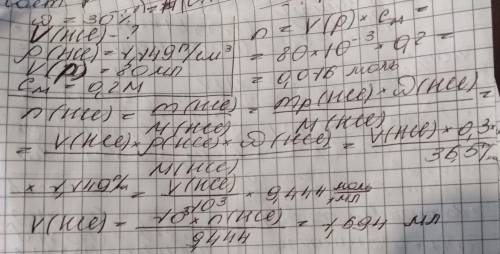 ω = 30%
V(HCl) - ?
ρ(HCl) = 1,149 г/см³
V(р) = 80 мл
См = 0,2М
n = V(р) × См =
= 80 × 10⁻³ × 0,2 =
= 0,016 моль
n(HCl) = m(HCl) / M(HCl) = mр(HCl) × ω(HCl) / M(HCl) =
= V(HCl) × ρ(HCl) × ω(HCl) / M(HCl) = V(HCl) × 0,3 × / 36,5 г/м
× 1,149 г/м = V(HCl) / 10³ × 9,444 моль/мл
V(HCl) = 10³ × n(HCl) / 9,444 = 1,694 мл